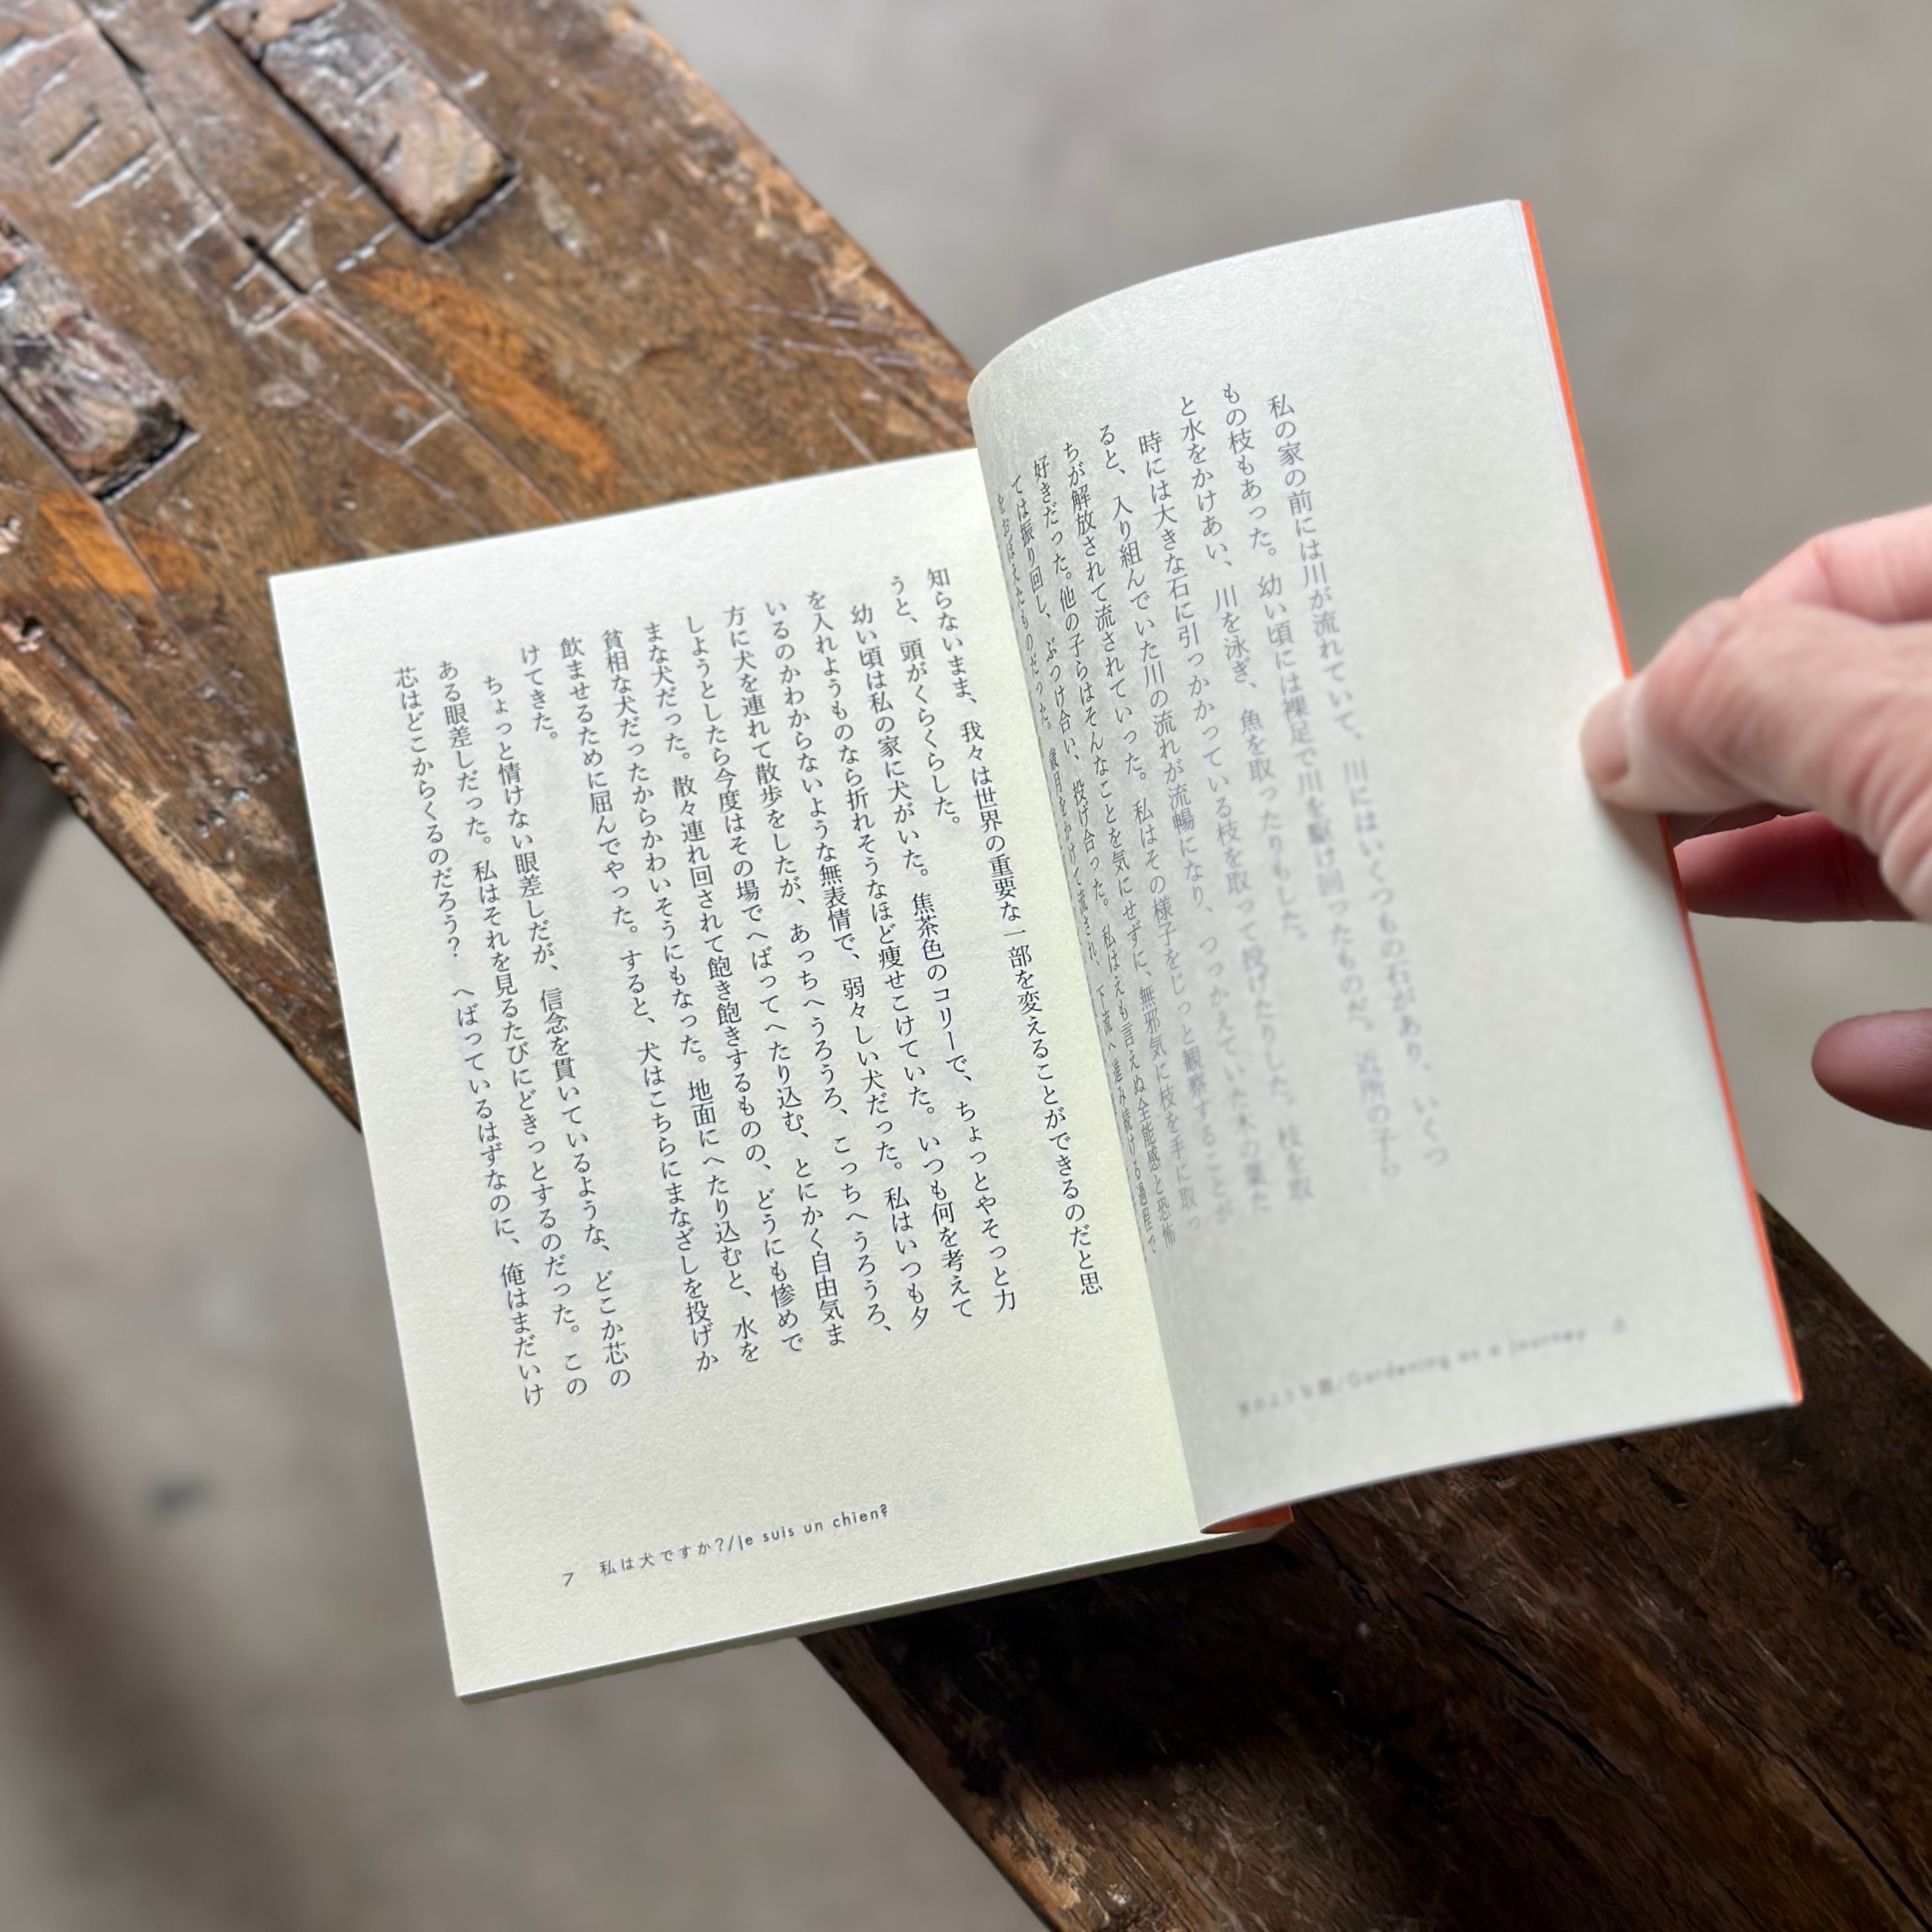 私の家の前には川が流れていて、川にはいくつもの石があり、いくつ
もの枝もあった。幼い頃には裸足で川を駆け回ったものだ。近所の子ら
と水をかけあい、川を泳ぎ、魚を取ったりもした。
時には大きな石に引っかかっている枝を取って投げたりした。枝を取
ると、入り組んでいた川の流れが流暢になり、つっかえていた木の葉た
ちが解放されて流されていった。私はその様子をじっと観察することが
好きだった。他の子らはそんなことを気にせずに、無邪気に枝を手に取っ
ては振り回し、ぶつけ合い、投げ合った。私はえも言えぬ全能感と恐怖
をおぼえたものだった。歳月をかけて流され、下流へ進み続ける過程で
/Gardening as a journey
知らないまま、我々は世界の重要な一部を変えることができるのだと思
うと、頭がくらくらした。
幼い頃は私の家に犬がいた。焦茶色のコリーで、ちょっとやそっと力
を入れようものなら折れそうなほど痩せこけていた。いつも何を考えて
いるのかわからないような無表情で、弱々しい犬だった。私はいつも夕
方に犬を連れて散歩をしたが、あっちへうろうろ、こっちへうろうろ、
しようとしたら今度はその場でへばってへたり込む、とにかく自由気ま
まな犬だった。散々連れ回されて飽き飽きするものの、どうにも惨めで
貧相な犬だったからかわいそうにもなった。地面にへたり込むと、水を
飲ませるために屈んでやった。すると、犬はこちらにまなざしを投げか
けてきた。
ちょっと情けない眼差しだが、信念を貫いているような、どこか芯の
ある眼差しだった。私はそれを見るたびにどきっとするのだった。この
芯はどこからくるのだろう？　へばっているはずなのに、俺はまだいけ
7 私は犬ですか?/je suis un chien?